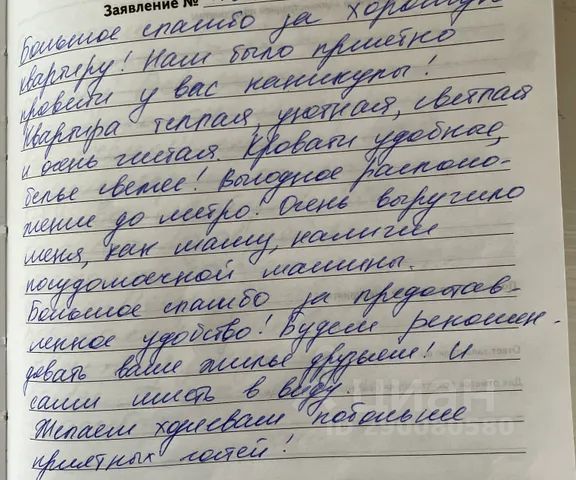 Заявление №
Большое спасибо за хорошую
квартиру! Нам было приятно
провести у вас каникулы!
Квартира теплая, уютная, светлая
и очень чистая. Кровати удобные,
белье свежее! Выгодное располо-
жение до метро! Очень выручило
меня, как маму, наличие
посудомоечной машины.
Большое спасибо за предостав-
ленное удобство! Будем рекомен-
довать ваше жилье друзьям! И
сами иметь в виду.
Желаем хозяевам побольше
приятных гостей!
циан